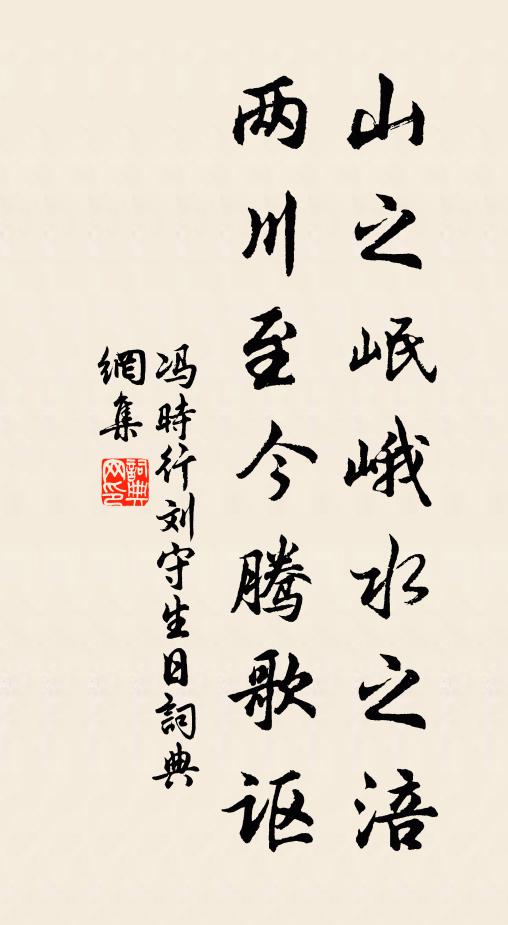 山之岷峨水之涪
两川至今腾歌讴
冯時行刘守生日詞典
網集
詞典网印